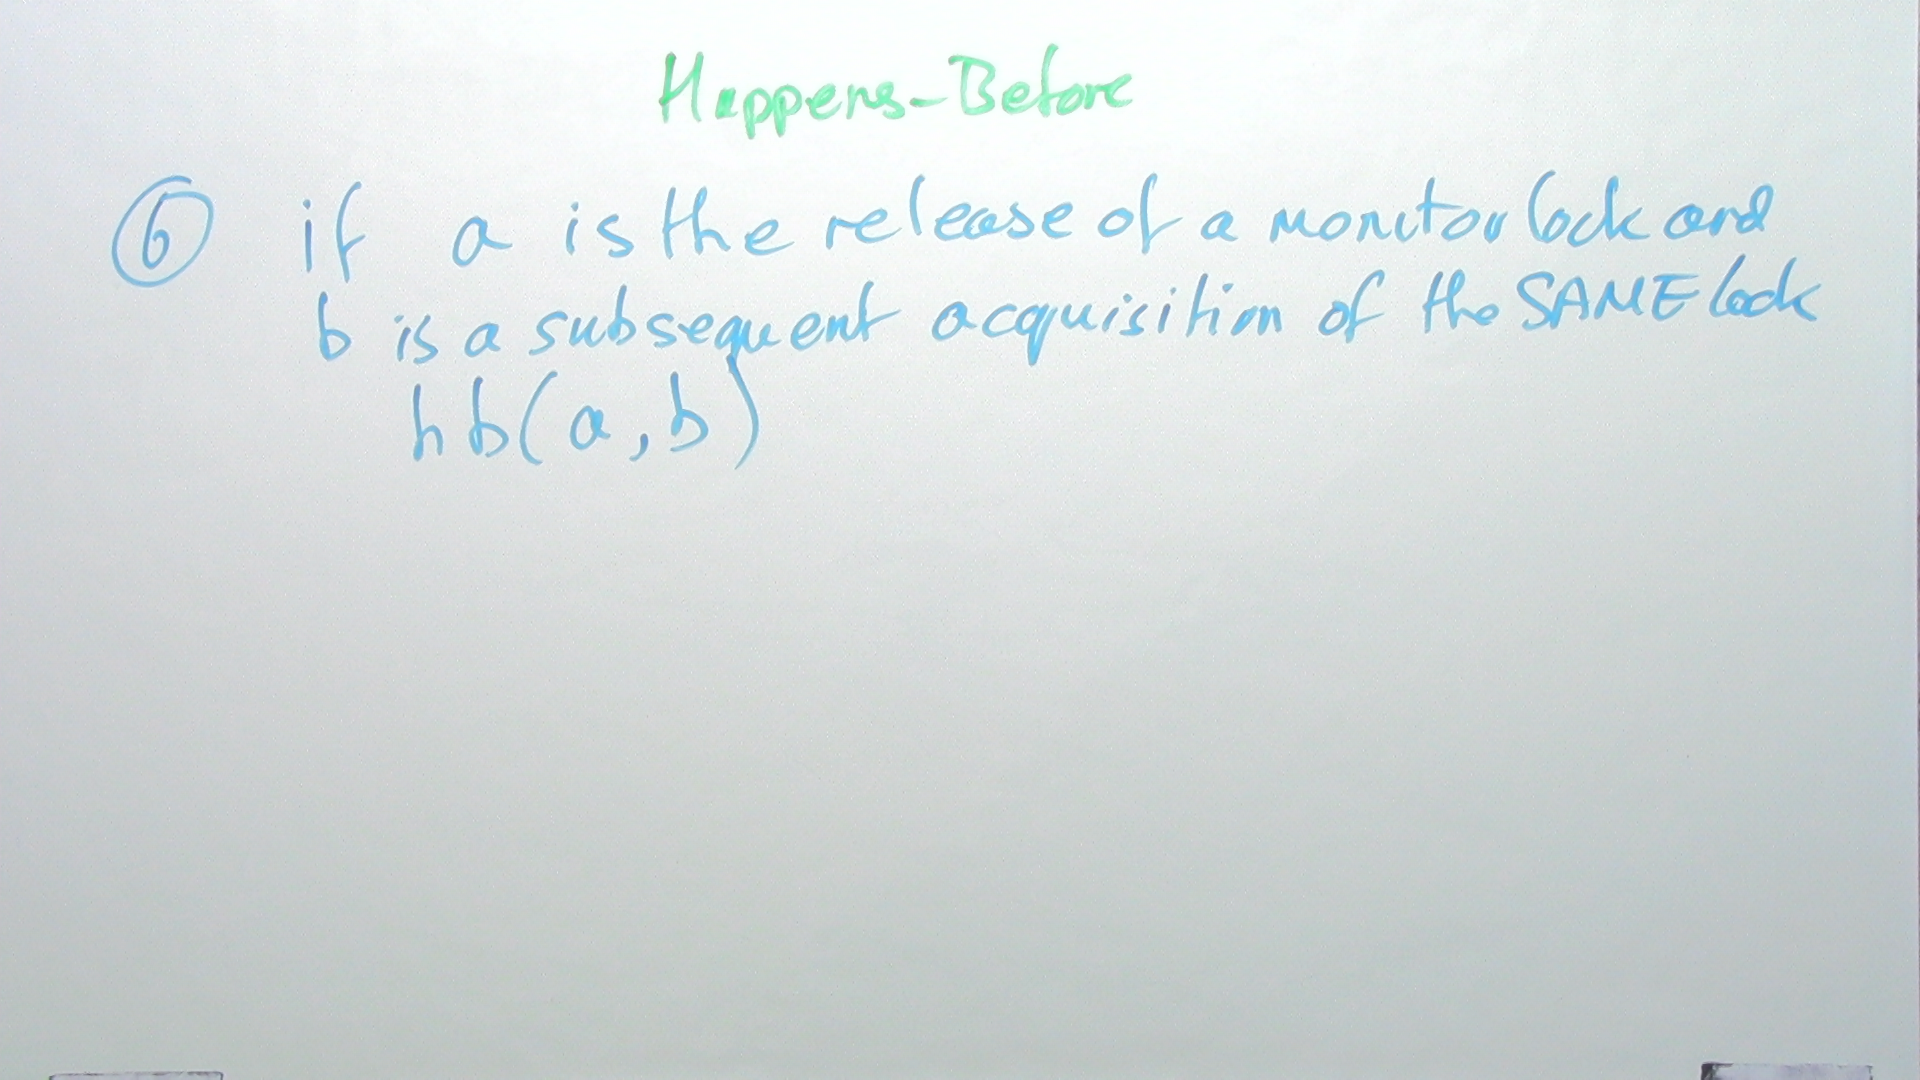 Happens-Before
⑥ if a is the release of a monitor lock and
b is a subsequent acquisition of the SAME lock
hb(a,b)